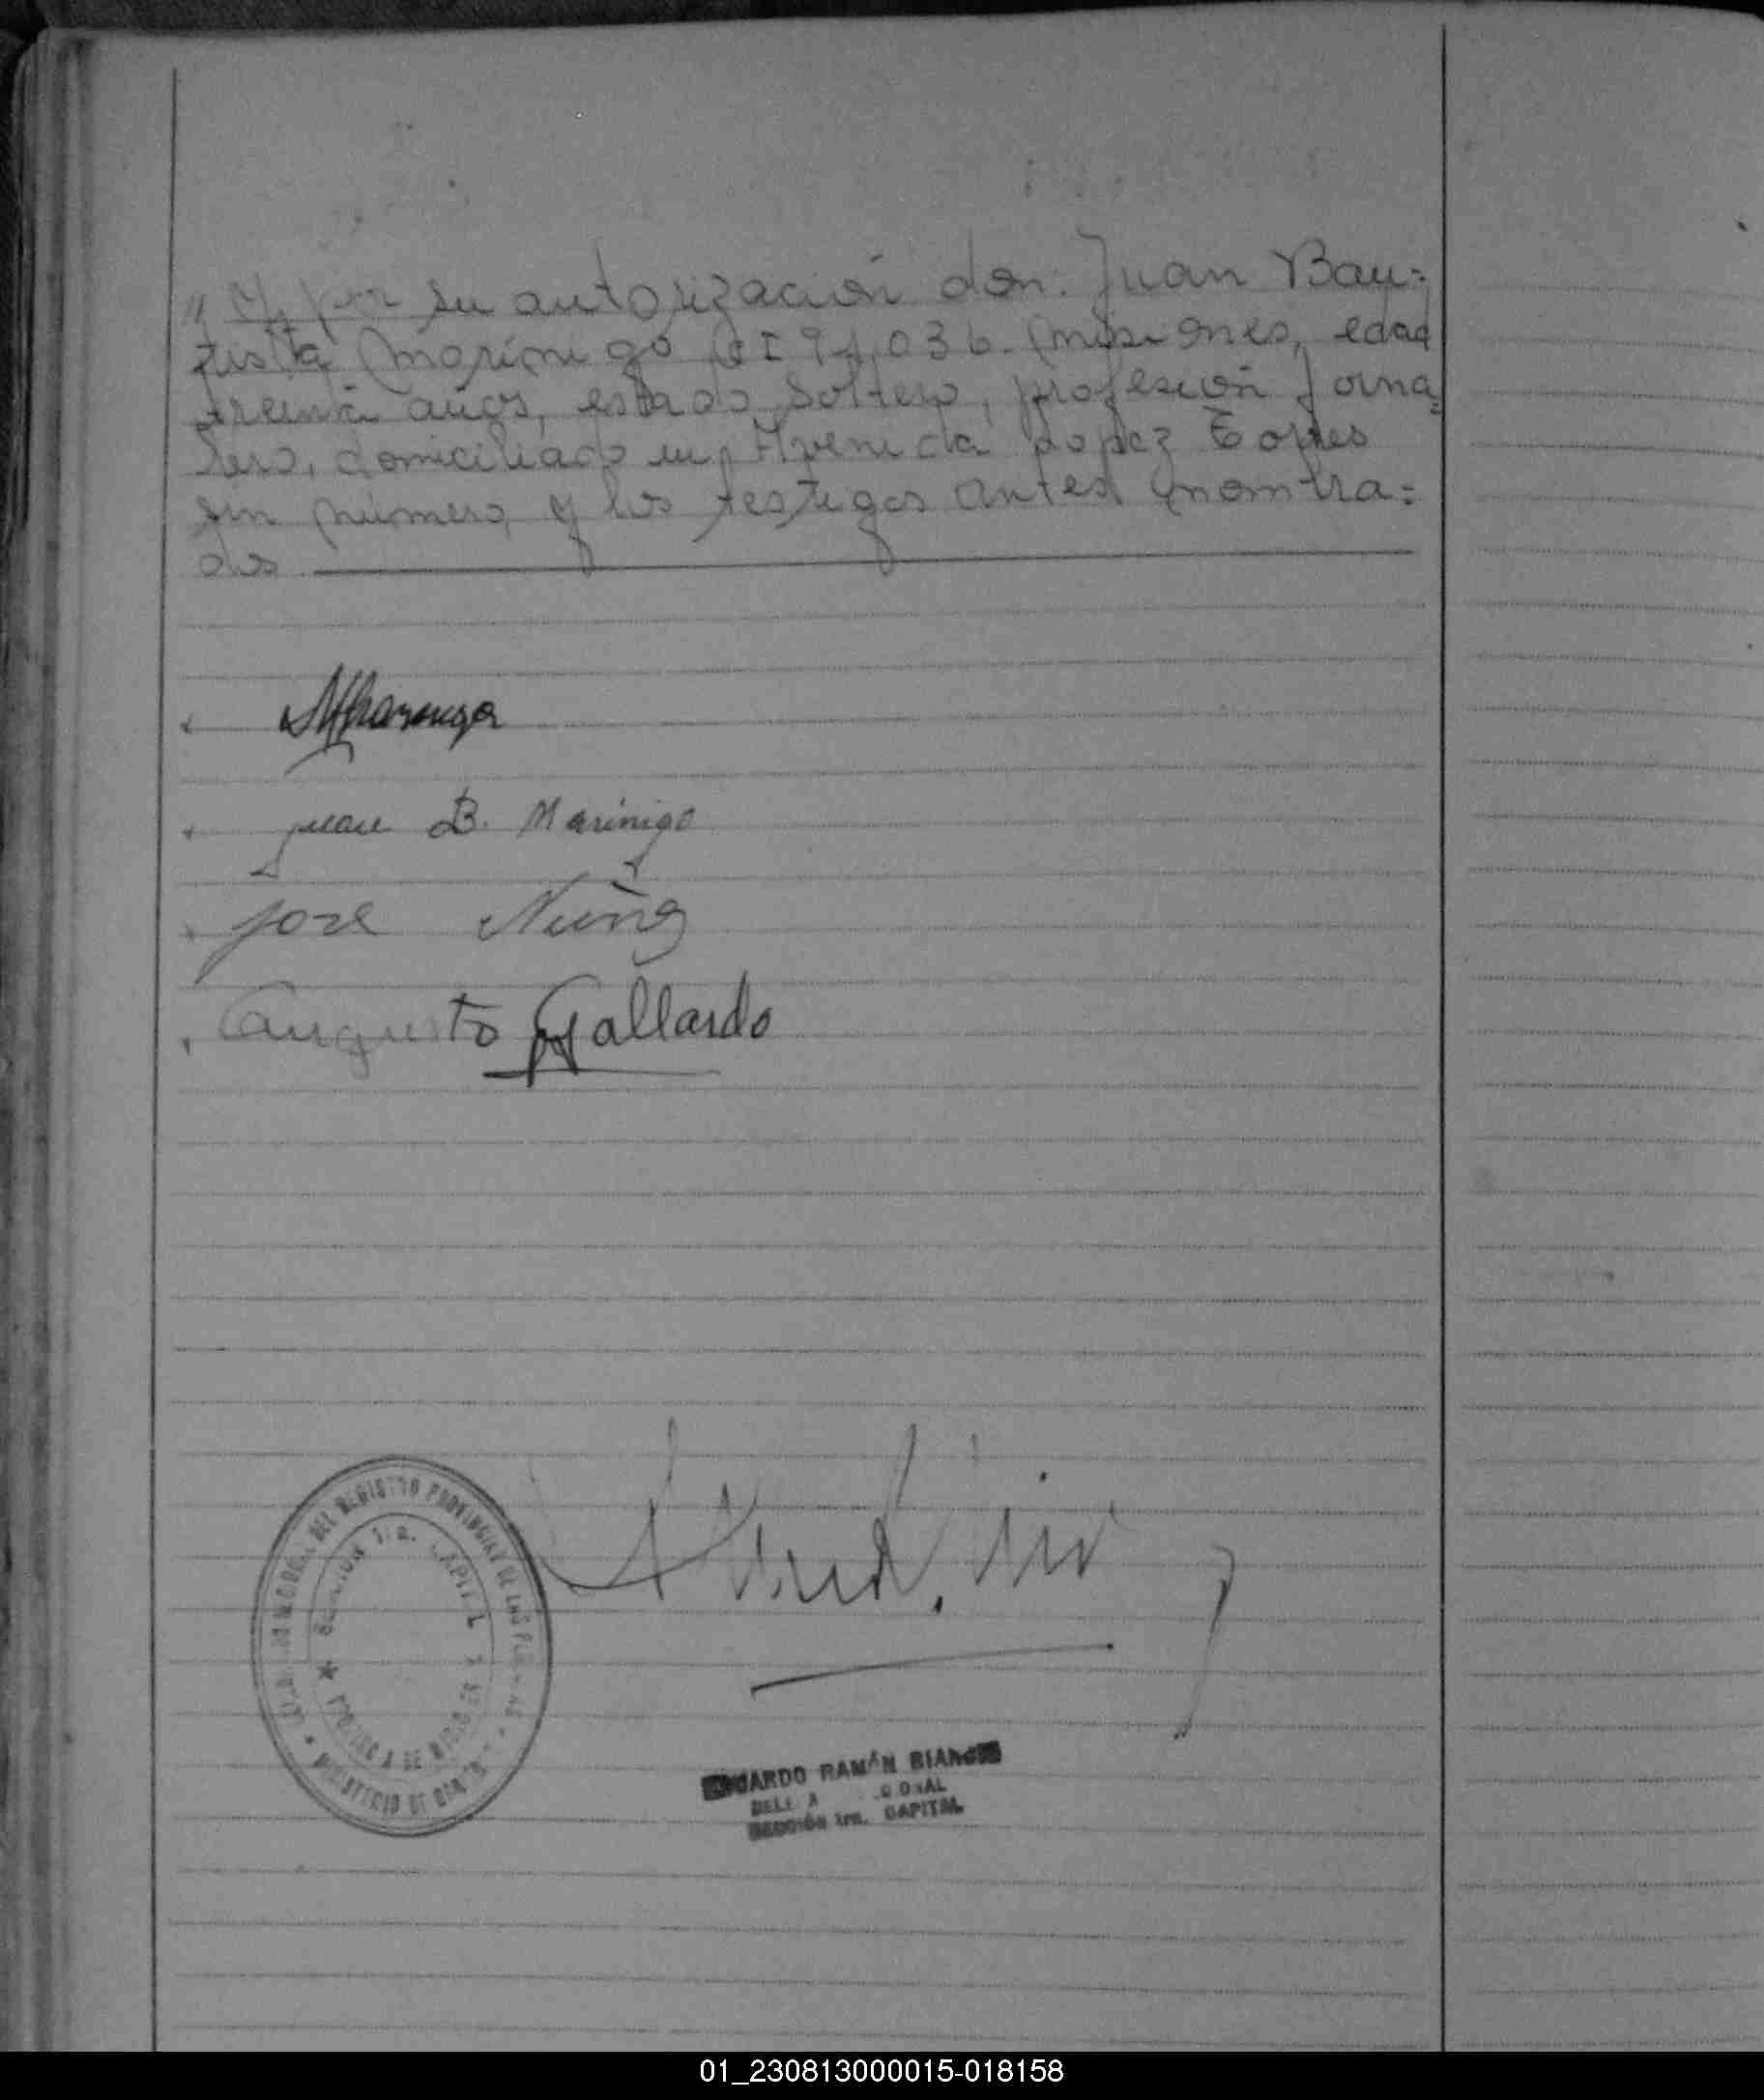 " Y por su autorización don: Juan Bau=
tista Marinigo C I 91.036. Misiones, edad
treinta años, estado soltero, profesión Jorna=
lero, domiciliado en Avenida Lopez Torres
sin número, y los testigos antes nombra=
dos
Juan B. Marinigo
José Nuñez
Augusto Gallardo
DEL REGISTRO PROVINCIAL DE LAS PERSONAS
SECCION 1ra. CAPITAL
PROVINCIA DE MISIONES
MINISTERIO DE
EDUARDO RAMÓN BIANCHI
SECCIÓN 1ra. CAPITAL
01_230813000015-018158